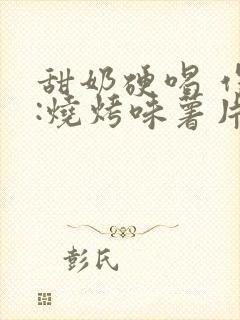 甜奶硬唱
:燒烤味薯片
彭氏